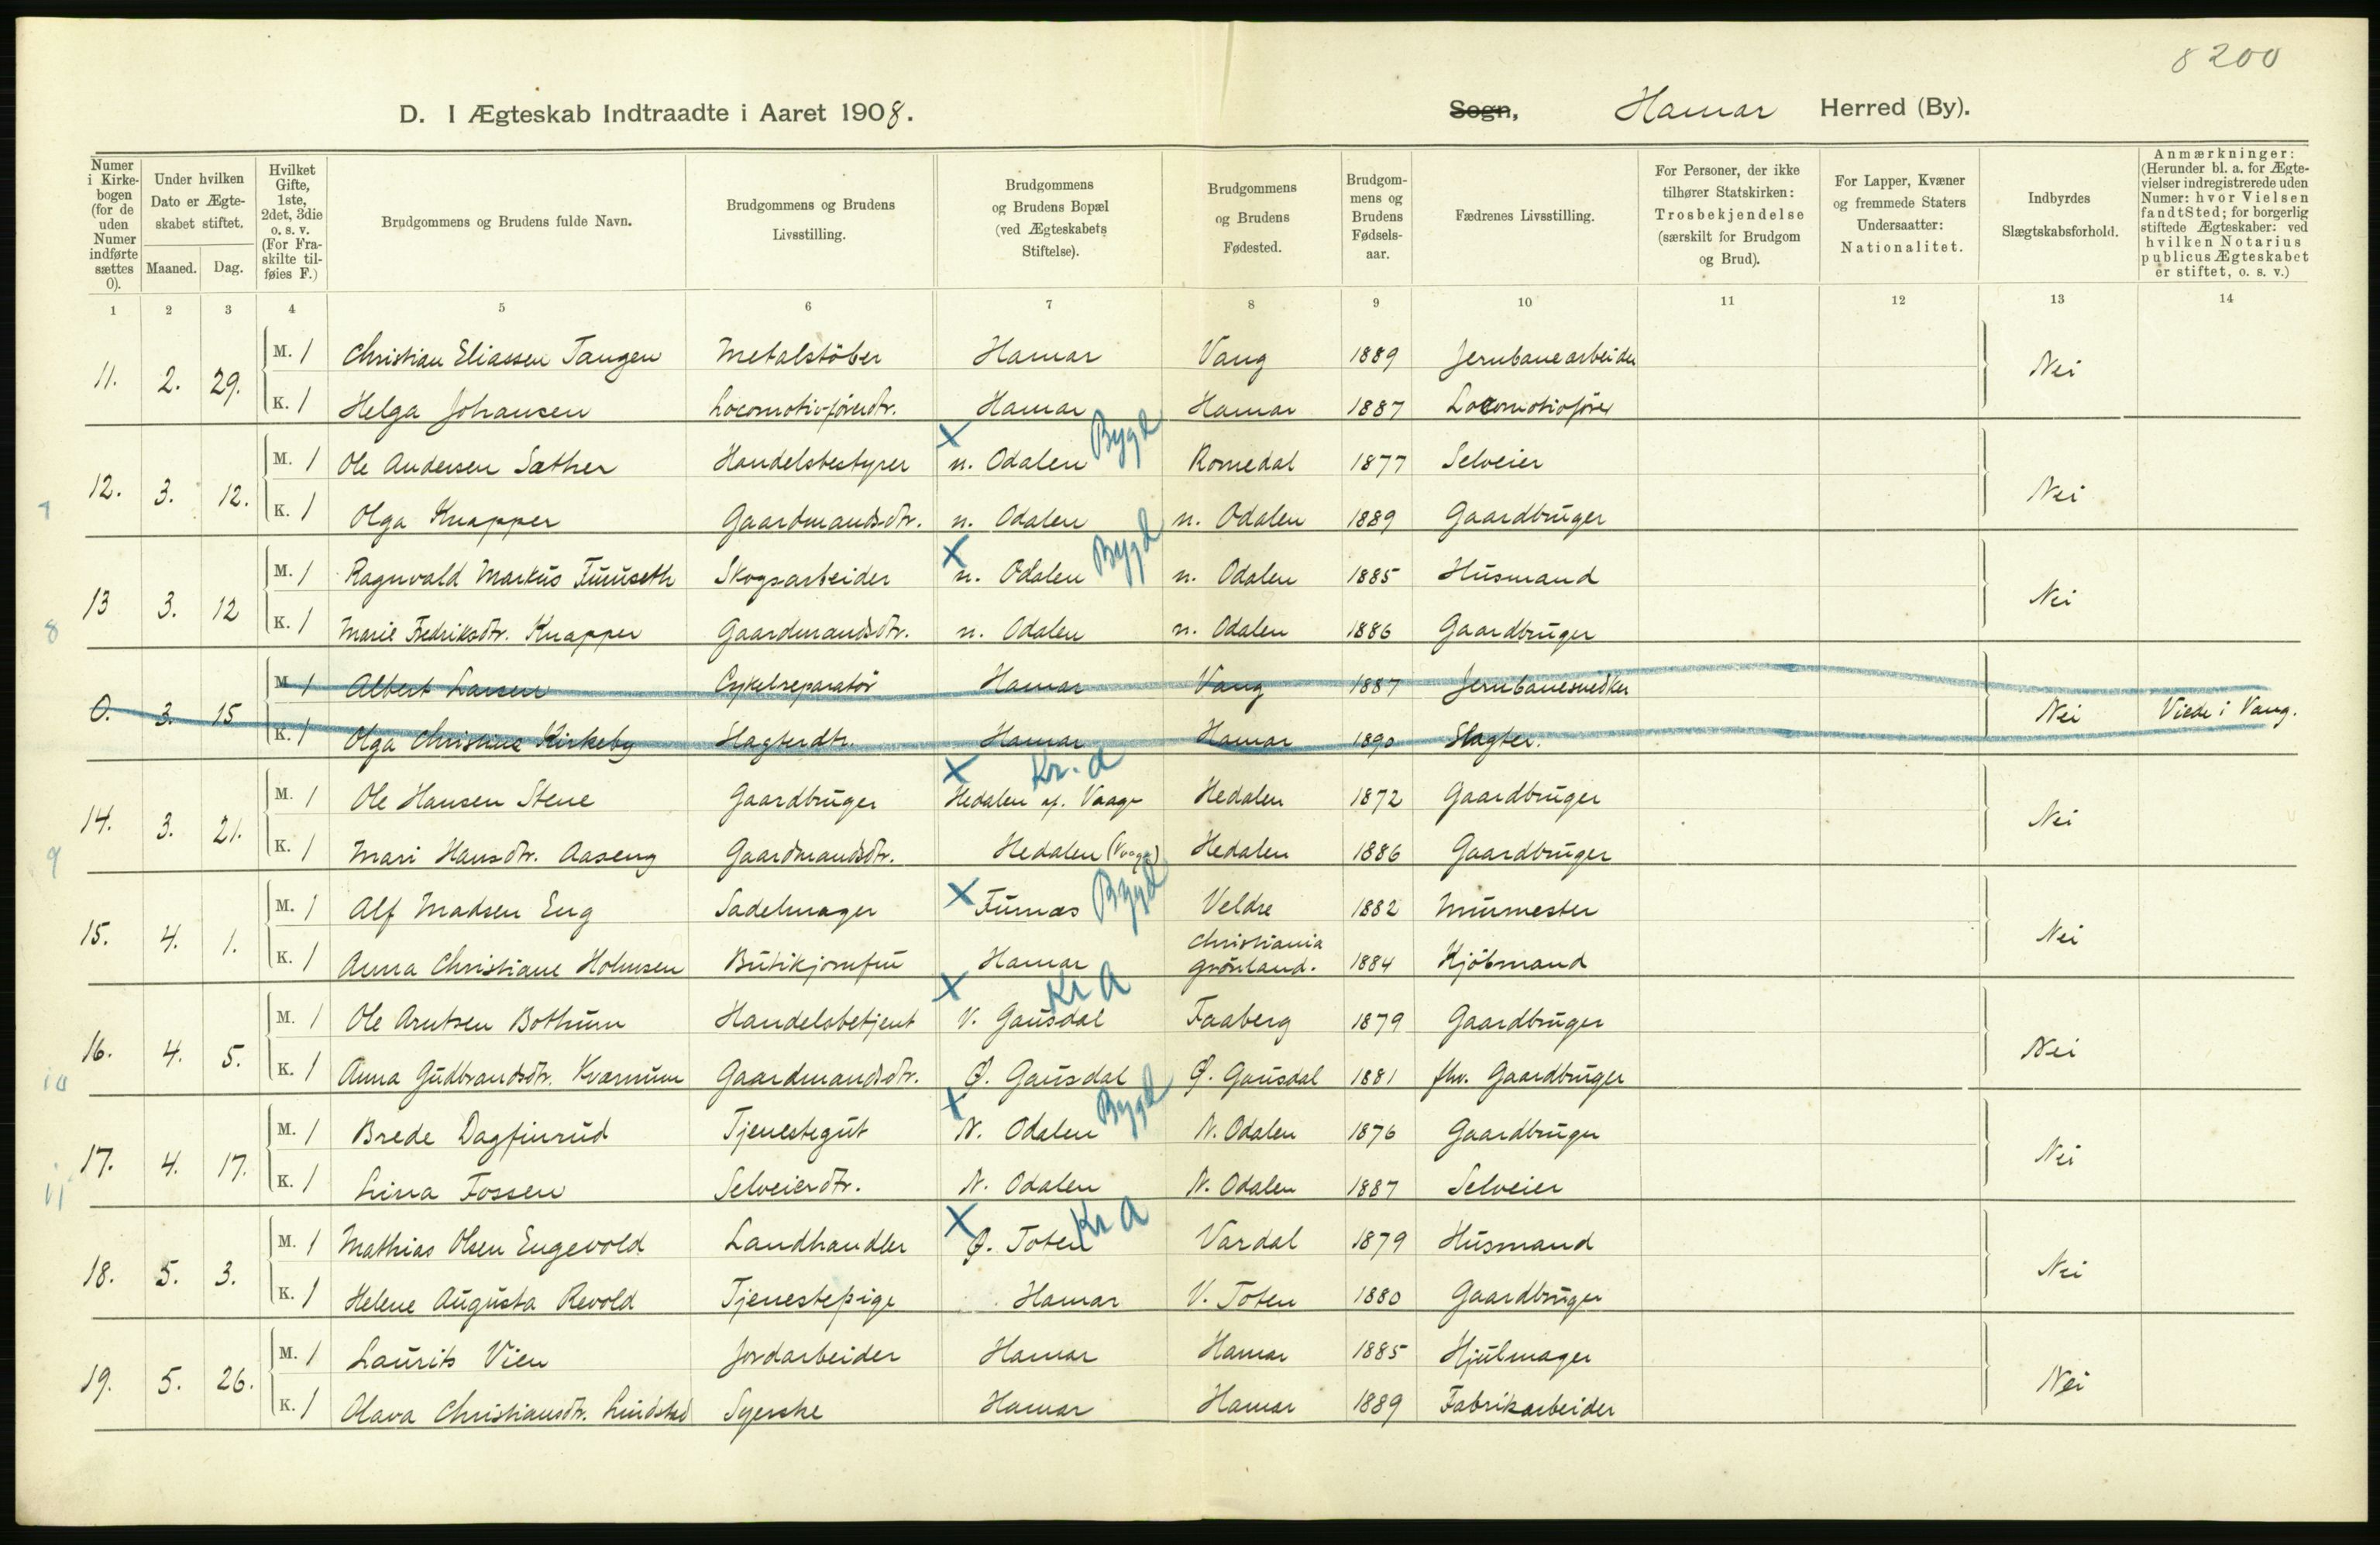 8200
D. I Ægteskab Indtraadte i Aaret 1908.
Sogn, Hamar Herred (By).
Numer i Kirkebogen (for de uden Numer indførte sættes 0).
Under hvilken Dato er Ægteskabet stiftet.
Maaned. Dag.
Hvilket Gifte, 1ste, 2det, 3die o. s. v. (For Fraskilte tilføies F.)
Brudgommens og Brudens fulde Navn.
Brudgommens og Brudens Livsstilling.
Brudgommens og Brudens Bopæl (ved Ægteskabets Stiftelse).
Brudgommens og Brudens Fødested.
Brudgommens og Brudens Fødselsaar.
Fædrenes Livsstilling.
For Personer, der ikke tilhører Statskirken: Trosbekjendelse (særskilt for Brudgom og Brud).
For Lapper, Kvæner og fremmede Staters Undersaatter: Nationalitet.
Indbyrdes Slægtskabsforhold.
Anmærkninger: (Herunder bl. a. for Ægtevielser indregistrerede uden Numer: hvor Vielsen fandt Sted; for borgerlig stiftede Ægteskaber: ved hvilken Notarius publicus Ægteskabet er stiftet, o. s. v.)
1 2 3 4 5 6 7 8 9 10 11 12 13 14
11. 2. 29. M. 1 Christian Eliassen Tangen Metalstöber Hamar Vang 1889 Jernbanearbeider Nei
K. 1 Helga Johansen Locomotivförerdtr. Hamar Hamar 1887 Locomotivförer
12. 3. 12. M. 1 Ole Andersen Sæther Handelsbestyrer X n. Odalen Bygd Romedal 1877 Selveier Nei
7 K. 1 Olga Knapper Gaardmandsdtr. n. Odalen n. Odalen 1889 Gaardbruger
13 3. 12 M. 1 Ragnvald Markus Fuuseth Skogsarbeider X n. Odalen Bygd n. Odalen 1885 Husmand Nei
8 K. 1 Marie Fredriksdtr. Knapper Gaardmandsdtr. n. Odalen n. Odalen 1886 Gaardbruger
0. 3. 15 M. 1 Albert Larsen Cykelreparatör Hamar Vang 1887 Jernbanesnedker Nei Viede i Vang.
K. 1 Olga Christine Kirkeby Slagterdtr. Hamar Hamar 1890 Slagter.
14. 3. 21. M. 1 Ole Hansen Stene Gaardbruger X Kr. a Hedalen af. Vaage Hedalen 1872 Gaardbruger Nei
9 K. 1 Mari Hansdtr. Aaseng Gaardmandsdtr. Hedalen (Vaage) Hedalen 1886 Gaardbruger
15. 4. 1. M. 1 Alf Madsen Eng Sadelmager X Furnæs Bygd Veldre 1882 Murmester Nei
K. 1 Anna Christiane Holmsen Butikjomfru Hamar Christiania Grönland. 1884 Kjöbmand
16. 4. 5. M. 1 Ole Arntsen Bothum Handelsbetjent X Kr a V. Gausdal Faaberg 1879 Gaardbruger Nei
10 K. 1 Anna Gudbrandsdtr. Kvarnum Gaardmandsdtr. Ø. Gausdal Ø. Gausdal 1881 fhv. Gaardbruger
17. 4. 17. M. 1 Brede Dagfinrud Tjenestegut X N. Odalen Bygd N. Odalen 1876 Gaardbruger Nei
11 K. 1 Lina Fossen Selveierdtr. N. Odalen N. Odalen 1887 Selveier
18. 5. 3. M. 1 Mathias Olsen Engevold Landhandler X Ø. Toten Kr a Vardal 1879 Husmand Nei
K. 1 Helene Augusta Revold Tjenestepige Hamar V. Toten 1880 Gaardbruger
19. 5. 26. M. 1 Laurits Vien Jordarbeider Hamar Hamar 1885 Hjulmager Nei
K. 1 Olava Christiansdtr. Lindstad Syerske Hamar Hamar 1889 Fabrikarbeider